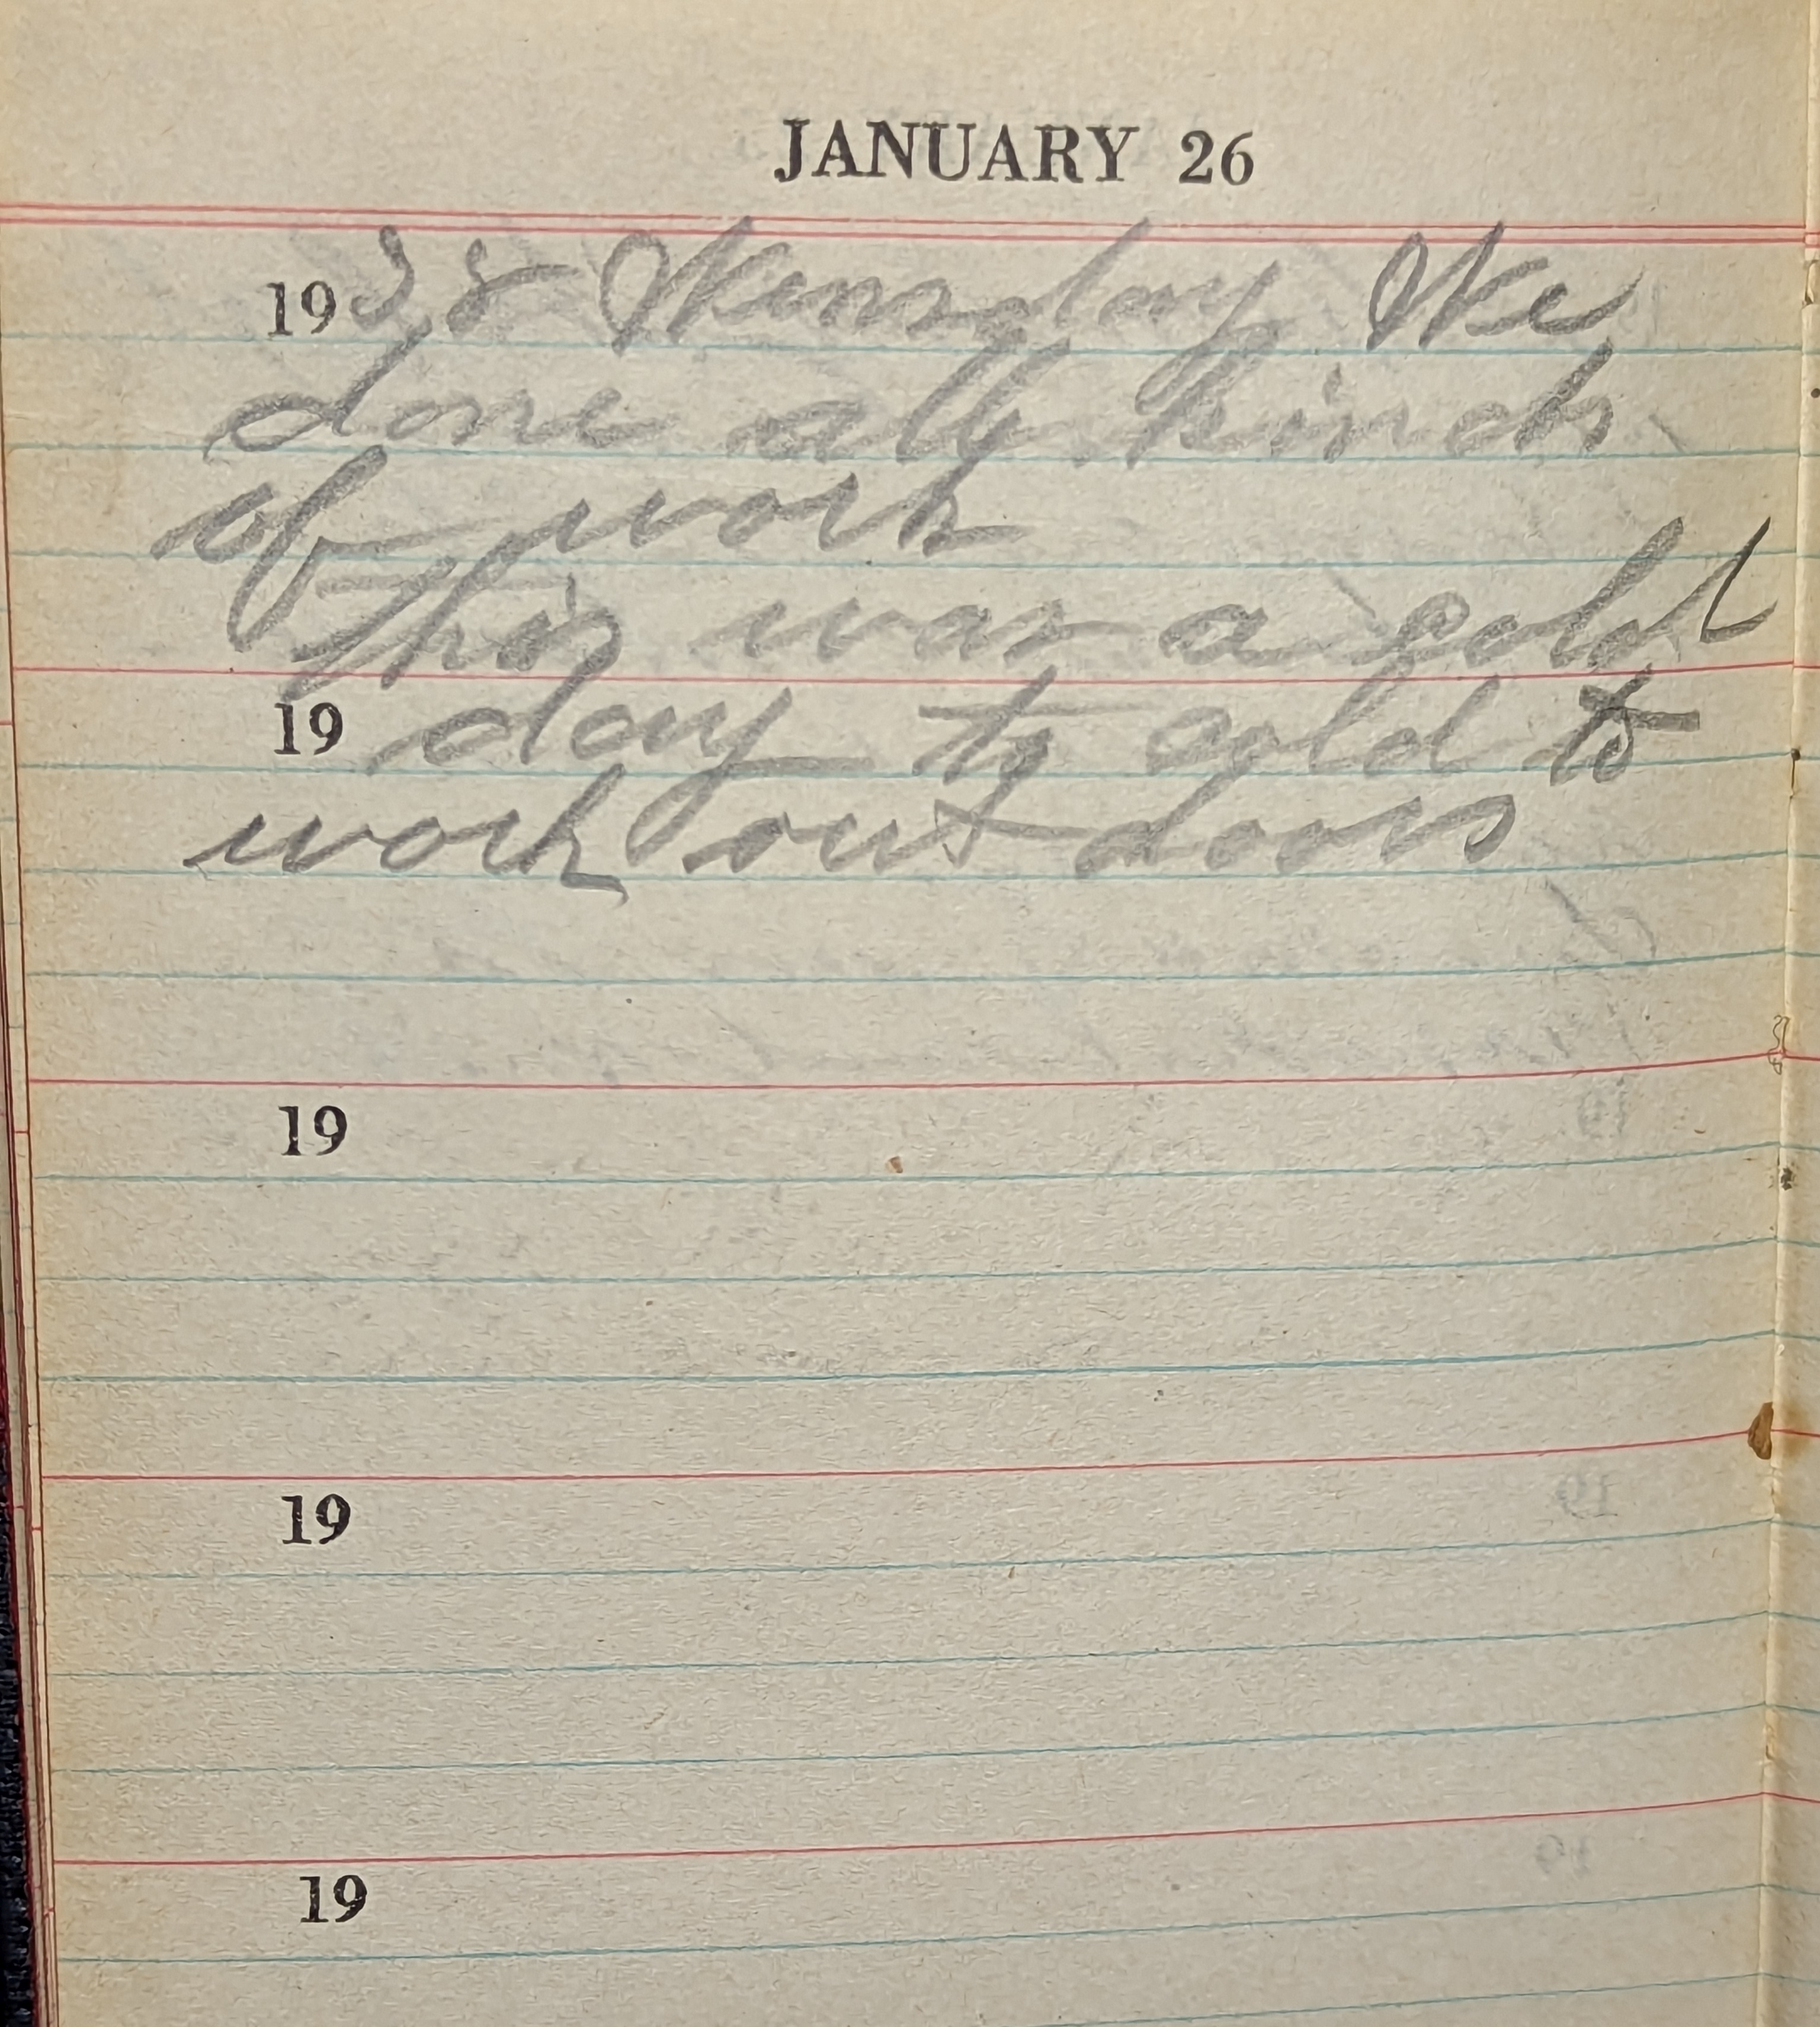 JANUARY 26
1938 Wensday We
done all kinds
of work
This was a cold
19 day to cold to
work out doors
19
19
19